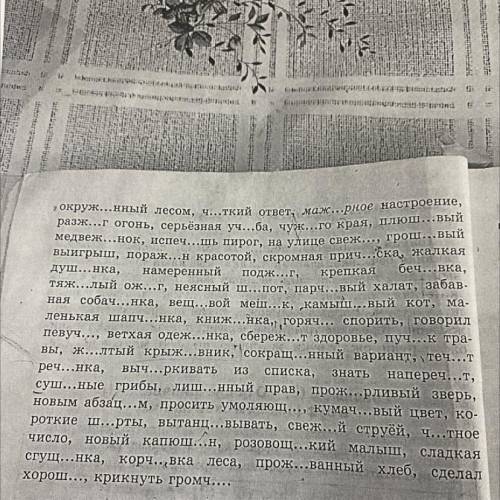 окруж...нный лесом, ч...ткий ответ, маж...рное настроение,
разж...г огонь, серьёзная уч...ба, чуж...го края, плюш...вый
медвеж...нок, испеч...шь пирог, на улице свеж..., грош...вый
выигрыш, пораж...н красотой, скромная прич...ска, жалкая
душ...нка, намеренный подж...г, крепкая беч...вка,
тяж...лый ож...г, неясный ш...пот, парч...вый халат, забав-
ная собач...нка, вещ...вой меш...к, камыш...вый кот, ма-
ленькая шапч...нка, книж...нка, горяч... спорить, говорил
певуч..., ветхая одеж...нка, сбереж...т здоровье, пуч...к тра-
вы, ж...лтый крыж...вник, сокращ...нный вариант, теч...т
реч...нка, выч...ркивать из списка, знать напереч...т,
суш...ные грибы, лиш...нный прав, прож...рливый зверь,
новым абзац...м, просить умоляющ..., кумач...вый цвет, ко-
роткие ш...рты, вытанц...вывать, свеж...й струёй, ч...тное
число, новый капюш...н, розовощ...кий малыш, сладкая
сгущ...нка, корч...вка леса, прож...ванный хлеб, сделал
хорош..., крикнуть громч....